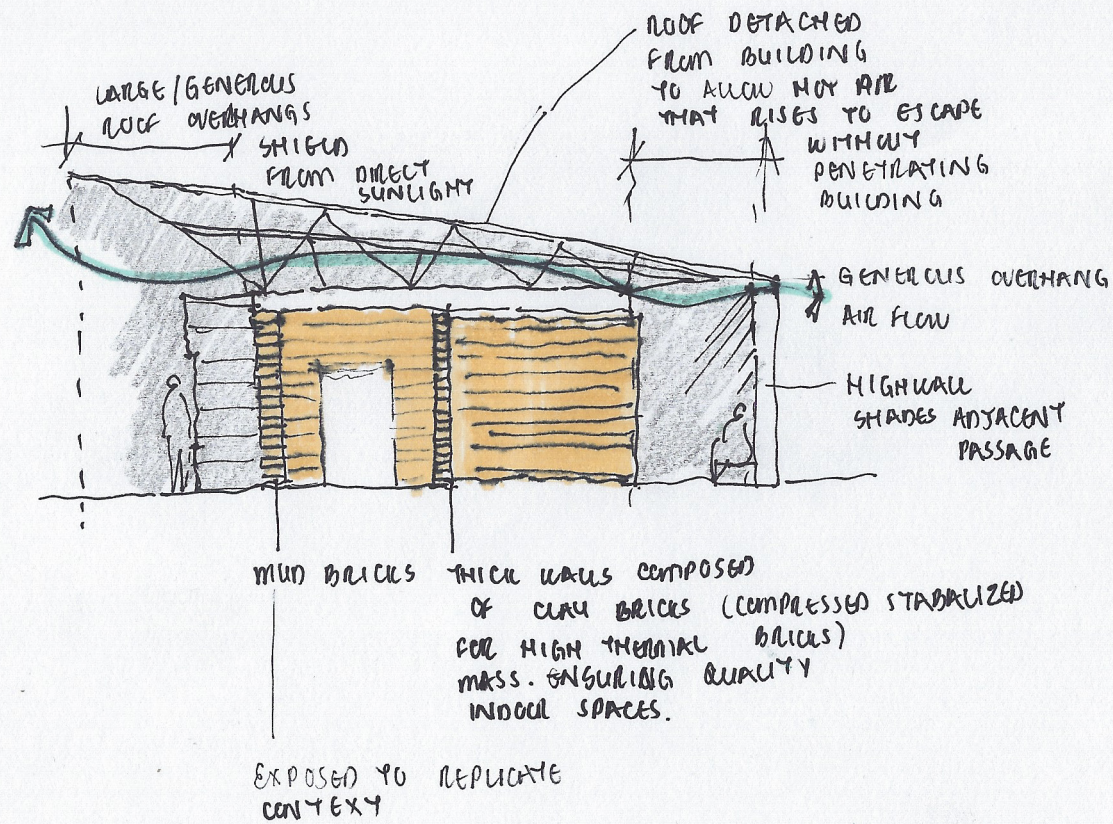 LARGE/GENEROUS
ROOF OVERHANGS
SHIELD
FROM DIRECT
SUNLIGHT
ROOF DETACHED
FROM BUILDING
TO ALLOW HOT AIR
THAT RISES TO ESCAPE
WITHOUT
PENETRATING
BUILDING
GENEROUS OVERHANG
AIR FLOW
HIGH WALL
SHADES ADJACENT
PASSAGE
MUD BRICKS
THICK WALLS COMPOSED
OF CLAY BRICKS (COMPRESSED STABALIZED
FOR HIGH THERMAL BRICKS)
MASS. ENSURING QUALITY
INDOOR SPACES.
EXPOSED TO REPLICATE
CONTEXT